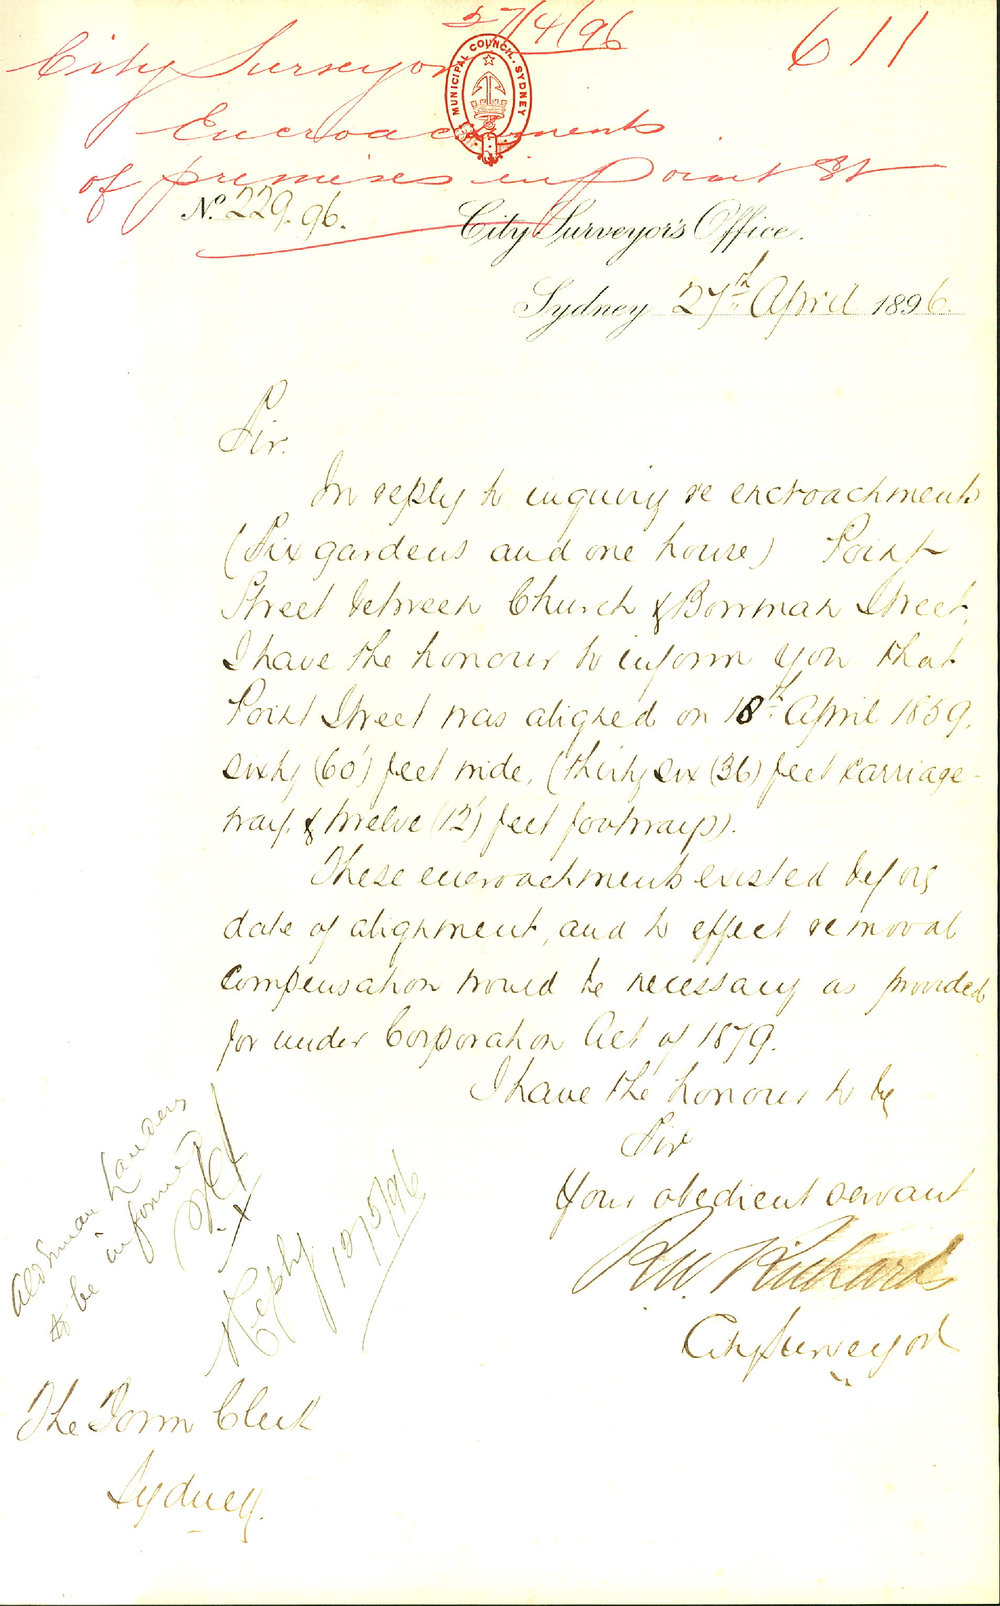 27/4/96
611
City Surveyor
MUNICIPAL COUNCIL. SYDNEY
Encroachments
of premises in Point St
No. 229.96.
City Surveyor's Office.
Sydney 27th April 1896.
Sir.
In reply to inquiry re encroachments
(Six gardens and one house) Point
Street between Church & Bowman Street.
I have the honour to inform you that
Point Street was aligned on 18th April 1859.
sixty (60') feet wide. (thirty six (36) feet carriage-
way, & twelve (12') feet footways).
These encroachments existed before
date of alignment, and to effect removal
compensation would be necessary as provided
for under Corporation Act of 1879.
I have the honour to be
Sir
Your obedient servant
R.W. Richards
City Surveyor
Alderman Landers
to be informed
Reply 12/5/96
The Town Clerk
Sydney.